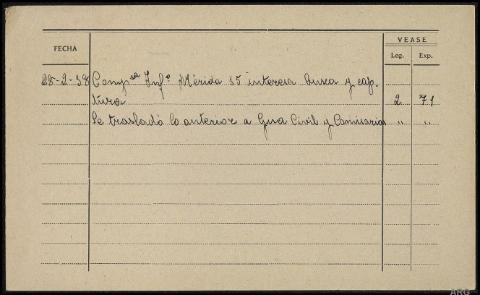 VEASE
FECHA
Leg. Exp.
28-2-38 Compª Infª Mérida 35 interesa busca y cap-
tura 2 71
Se trasladó lo anterior a Gua Civil y Comisaria " "
ARG